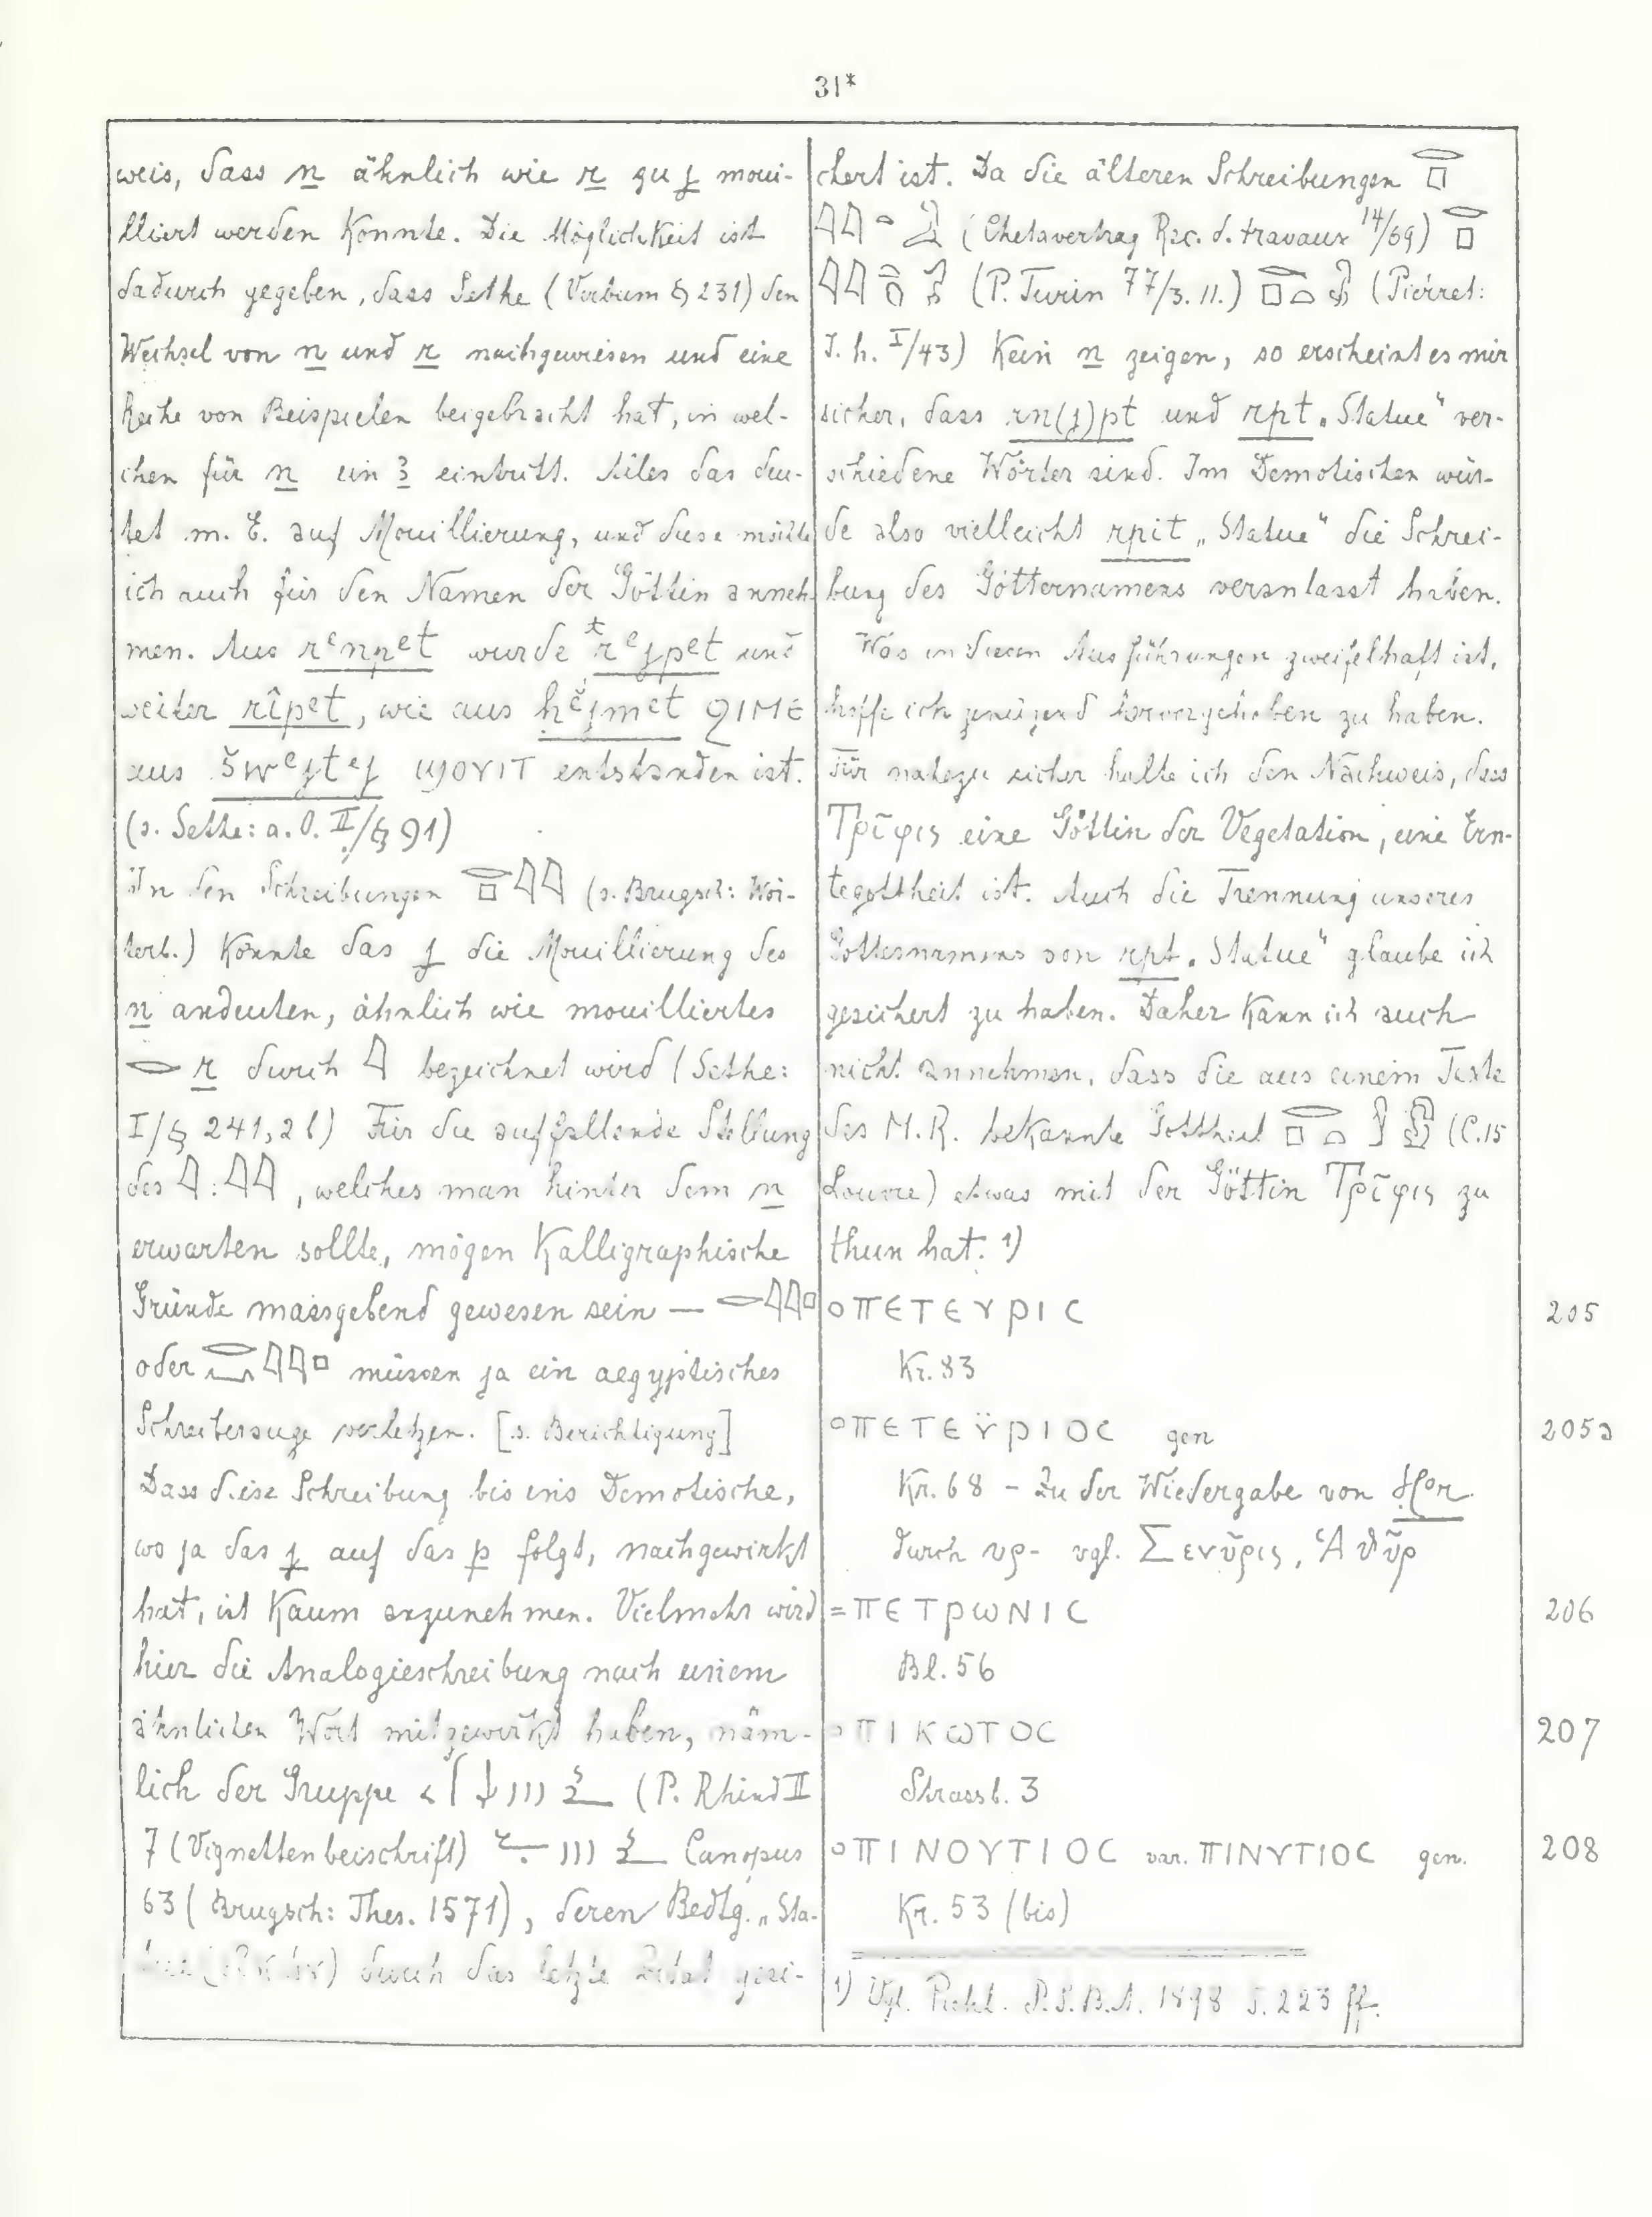 31*
weis, dass n ähnlich wie r zu j moui-
lliert werden konnte. Die Möglichkeit ist
dadurch gegeben, dass Sethe (Verbum § 231) den
Wechsel von n und r nachgewiesen und eine
Reihe von Beispielen beigebracht hat, in wel-
chen für n ein ꜣ eintritt. Alles das deu-
tet m. E. auf Mouillierung, und diese möchte
ich auch für den Namen der Göttin anneh-
men. Aus rᵉnpet wurde *rᵉjpet und
weiter rîpet, wie aus hĕjmet ϩΙΜΕ
aus šwᵉjtᵉj ϣΟΥΙΤ entstanden ist.
(s. Sethe: a. O. II/§ 91)
In den Schreibungen (s. Brugsch: Wör-
terb.) könnte das j die Mouillierung des
n andeuten, ähnlich wie mouilliertes
r durch bezeichnet wird (Sethe:
I/§ 241, 2) Für die auffallende Stellung
des , welches man hinter dem n
erwarten sollte, mögen kalligraphische
Gründe massgebend gewesen sein —
oder müssen ja ein aegyptisches
Schreiberauge verletzen. [s. Berichtigung]
Dass diese Schreibung bis ins Demotische,
wo ja das j auf das p folgt, nachgewirkt
hat, ist kaum anzunehmen. Vielmehr wird
hier die Analogieschreibung nach einem
ähnlichen Wort mitgewirkt haben, näm-
lich der Gruppe (P. Rhind II
7 (Vignettenbeischrift) Canopus
63 (Brugsch: Thes. 1571), deren Bedtg. „Sta-
durch das letzte Zitat gesi-
chert ist. Da die älteren Schreibungen
(Chetavertrag Rec. d. travaux 14/69)
(P. Turin 77/3. 11.) (Pierret:
I. h. I/43) kein n zeigen, so erscheint es mir
sicher, dass rn(j)pt und rpt „Statue“ ver-
schiedene Wörter sind. Im Demotischen wür-
de also vielleicht rpit „Statue“ die Schrei-
bung des Götternamens veranlasst haben.
Was in diesen Ausführungen zweifelhaft ist,
hoffe ich genügend hervorgehoben zu haben.
Für nahezu sicher halte ich den Nachweis, dass
Τρῖφις eine Göttin der Vegetation, eine Ern-
tegottheit ist. Auch die Trennung unseres
Gottesnamens von rpt „Statue“ glaube ich
gesichert zu haben. Daher kann ich auch
nicht annehmen, dass die aus einem Texte
des M. R. bekannte Gottheit (C. 15
Louvre) etwas mit der Göttin Τρῖφις zu
thun hat. 1)
○ΠΕΤΕΥΡΙC 205
Kr. 83
○ΠΕΤΕΫΡΙΟC gen 205a
Kr. 68 – Zu der Wiedergabe von Hor
durch υρ- vgl. Σενῦρις, Ἁθῦρ
=ΠΕΤΡωΝΙC 206
Bl. 56
○ΠΙΚωΤΟC 207
Strassb. 3
○ΠΙΝΟΥΤΙΟC var. ΠΙΝΥΤΙΟC gen. 208
Kr. 53 (bis)
1) Vgl. Piehl. P. S. B. A. 1898 S. 223 ff.